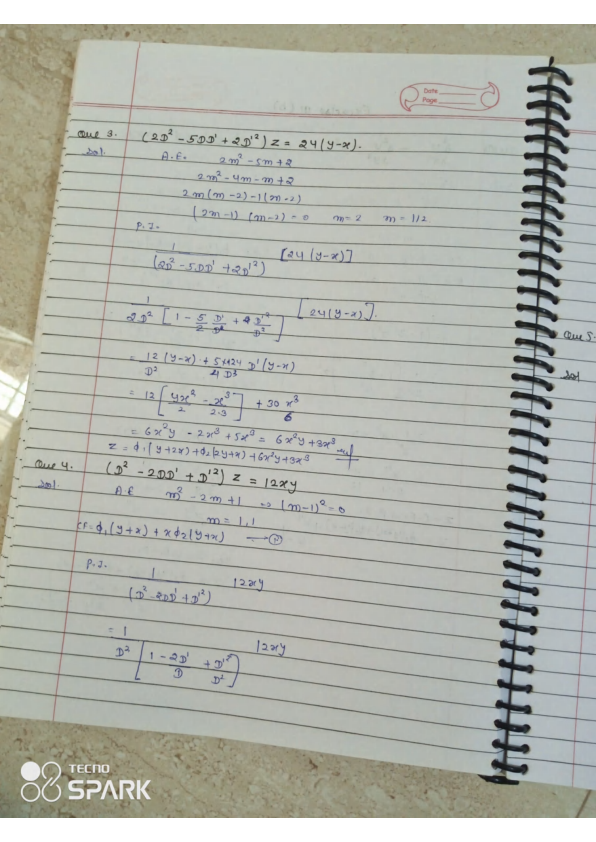 Date
Page
Que 3. (2D² - 5DD' + 2D'²) z = 24(y-x).
Sol. A.E. 2m² - 5m + 2
2m² - 4m - m + 2
2m(m-2) - 1(m-2)
(2m-1) (m-2) = 0 m = 2 m = 1/2
P.I.
1 / (2D² - 5DD' + 2D'²) [24 (y-x)]
1 / 2D² [1 - 5/2 D'/D + D'²/D²] [24(y-x)].
= 12 (y-x) / D² + 5×24 / 4D³ D'(y-x)
= 12 [yx²/2 - x³/2·3] + 30 x³/6
= 6x²y - 2x³ + 5x³ = 6x²y + 3x³
z = ϕ₁(y+2x) + ϕ₂(2y+x) + 6x²y + 3x³
Que 4. (D² - 2DD' + D'²) z = 12xy
Sol. A.E m² - 2m + 1 ⇒ (m-1)² = 0
m = 1,1
CF = ϕ₁(y+x) + xϕ₂(y+x) →
P.I. 1 / (D² - 2DD' + D'²) 12xy
= 1 / D² [1 - 2D'/D + D'²/D²] 12xy
Que 5.
Sol
TECNO
SPARK